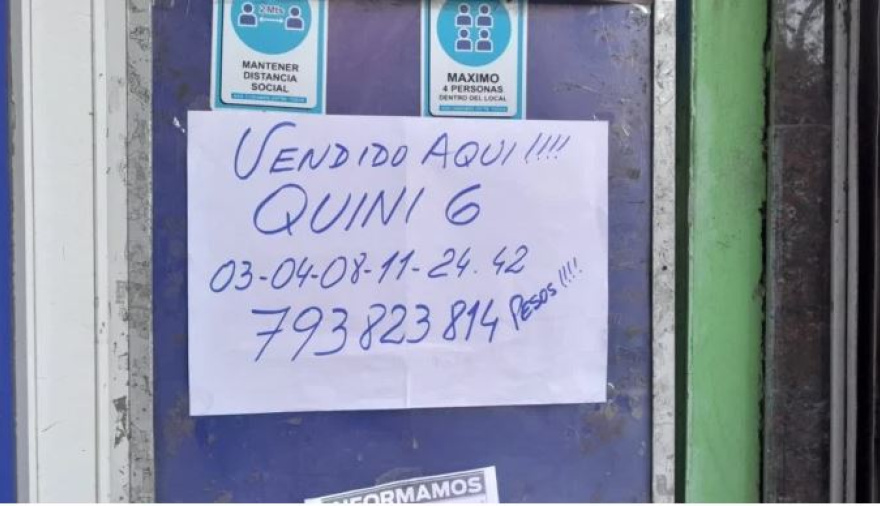 2 Mts.
MANTENER
DISTANCIA
SOCIAL
MAXIMO
4 PERSONAS
DENTRO DEL LOCAL
VENDIDO AQUI!!!!
QUINI 6
03-04-08-11-24.42
793823814 PESOS!!!!
INFORMAMOS